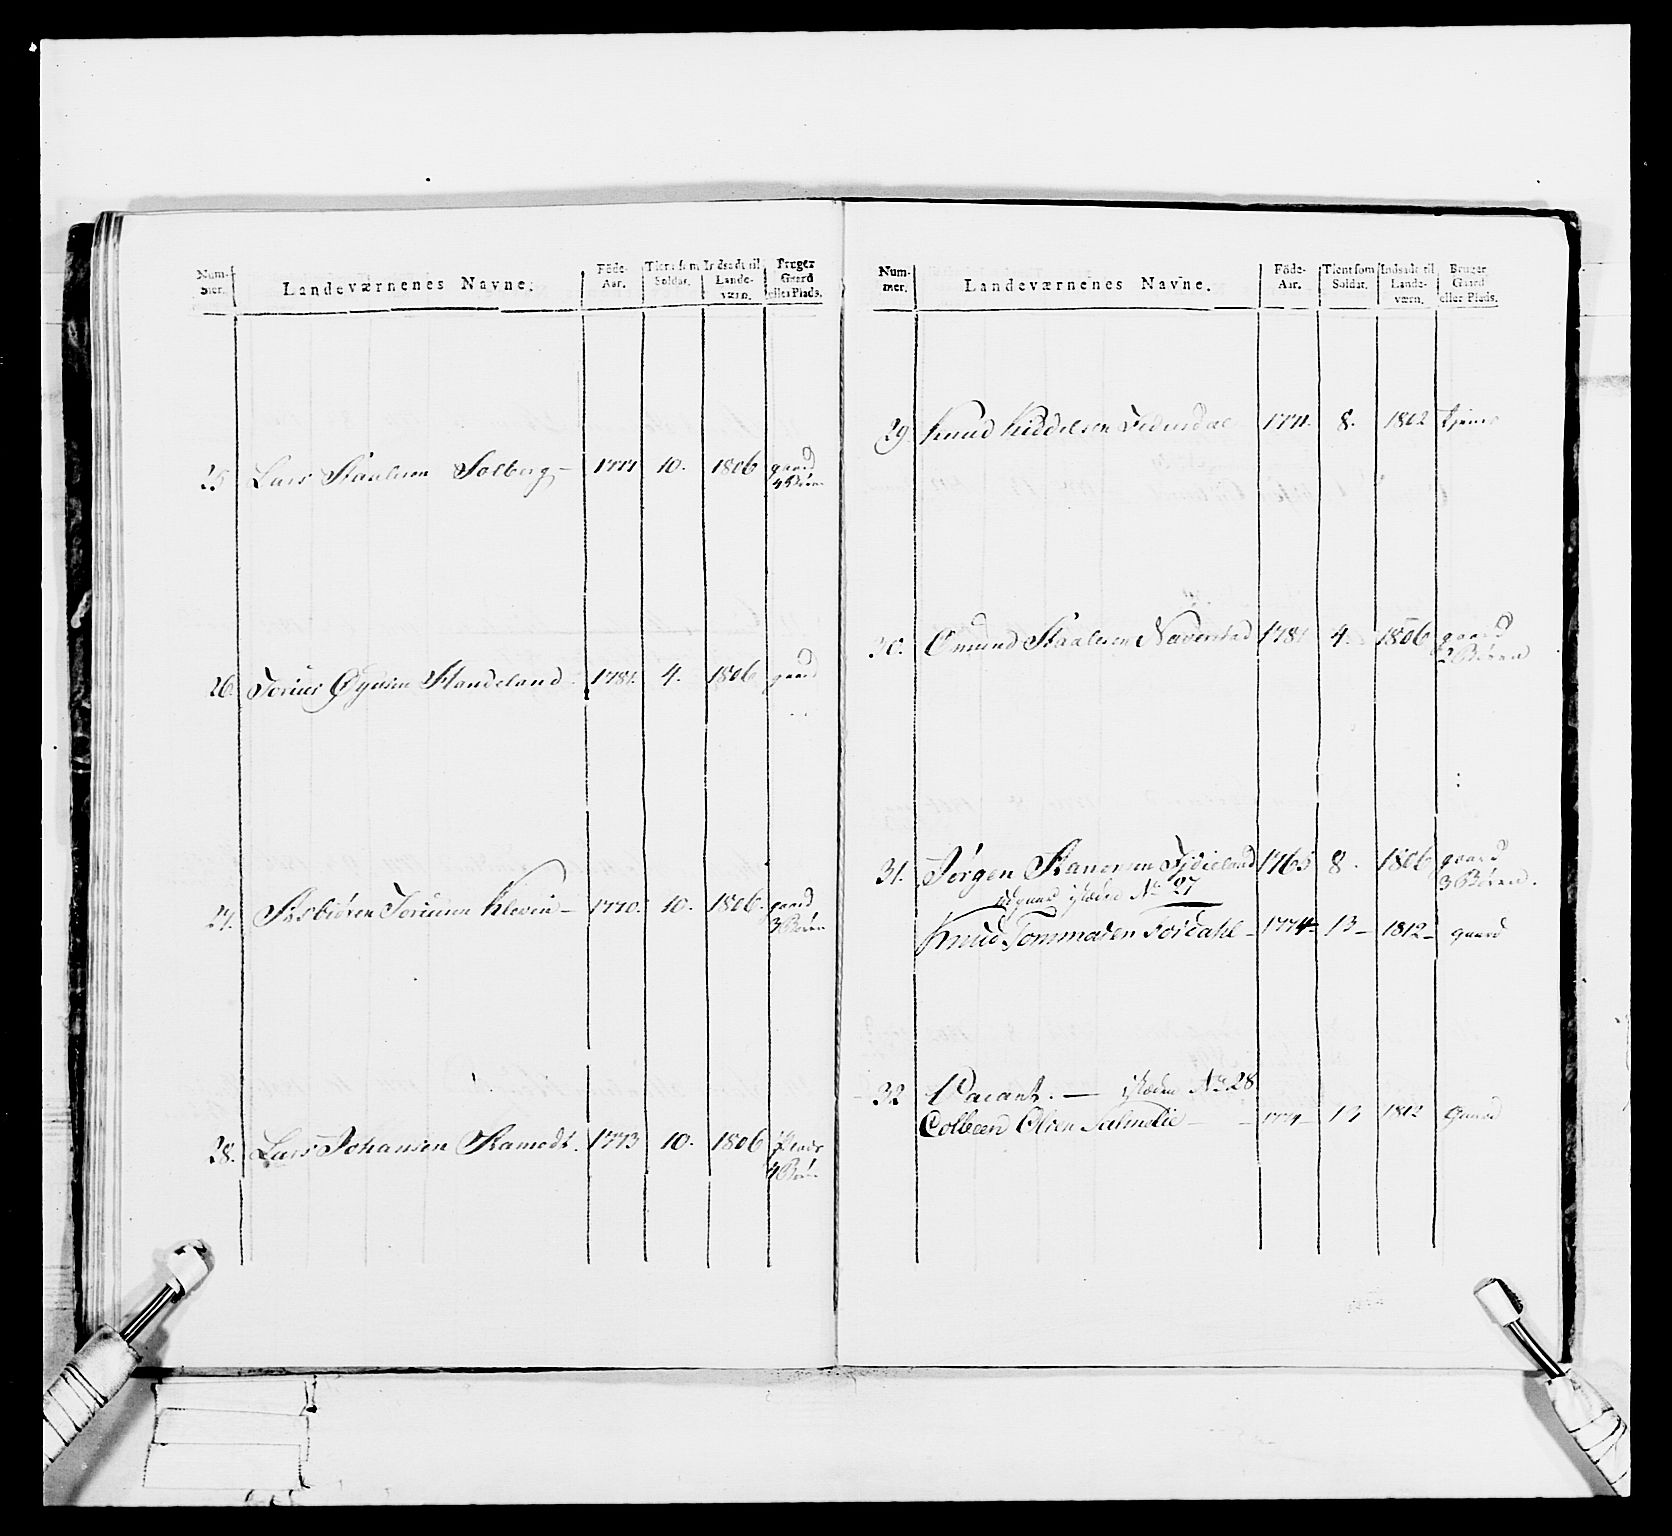 Num-mer. Landeværnenes Navne. Föde-Aar. Tient som Soldat. Indsadt til Lande-værn. Bruger Gaard eller Plads.
25 Lars Staalesen Solberg – 1777 10. 1806 gaard
4 Börn
26. Torier Øgusen Haudeland 1781. 4. 1806 gaard
27. Asbiören Toriusen Klevin – 1770. 10. 1806. gaard
3 Börn
28. Lars Johansen Ramodt. 1773 10. 1806 Plads
4 Börn
Num-mer. Landeværnenes Navne. Föde-Aar. Tient som Soldat. Indsadt til Lande-værn. Bruger Gaard eller Plads.
29. Knud Kiddelsen 1771. 8. 1802 tjener
30. Omund Staalesen 1781 4. 1806 gaard
2 Börn
31. Jörgen 1765 8. 1806 gaard
3 Börn.
No 27
Knud Tommasen Sördahl – 1774 – 13 – 1812 – gaard
32 Vacant. — No 28
Colbeen Olsen – 1774 – 13 1812 Gaard